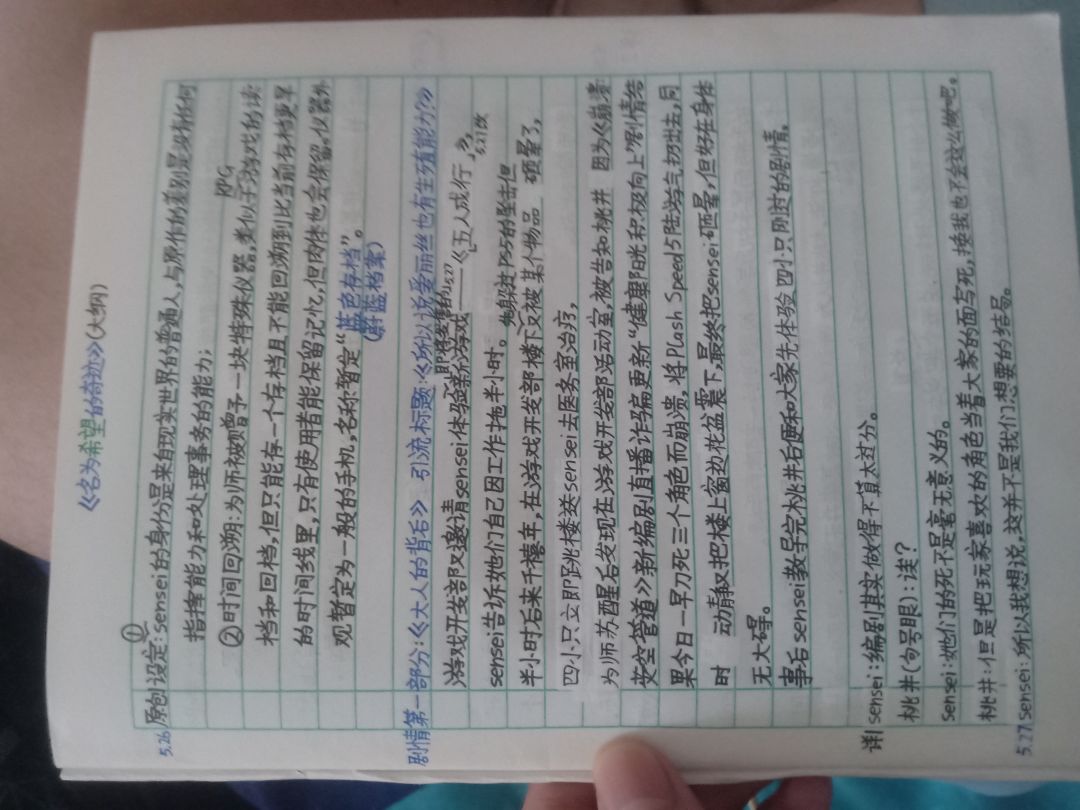 《名为希望的奇迹》(大纲)
5.26 原创设定:①sensei的身份是来自现实世界的普通人,与原作的差别是没有任何
指挥能力和处理事务的能力;
②时间回溯:为师被赠予一块特殊仪器,类似于RPG游戏的读
档和回档,但只能存一个存档且不能回溯到比当前存档更早
的时间线里,只有使用者能保留记忆,但肉体也会保留。仪器外
观暂定为一般的手机,名称暂定“蓝色存档”。
(蔚蓝档案)
剧情第一部分:《大人的背后》 引流标题:《所以说爱丽丝也有生殖能力?》
游戏开发部邀请sensei体验新游戏——《五人成行》,
5.27改
sensei告诉她们自己因工作拖半小时。
半小时后来千禧年,在游戏开发部楼下又被某个物品 砸晕了,
四小只立即跳楼送sensei去医务室治疗,
为师苏醒后发现在游戏开发部活动室,被告知桃井 因为《崩溃
安空管道》新编剧直播诈骗更新“健康阳光积极向上”剧情结
果今日一早刀死三个角色而崩溃,将Plash Speed 5陆学气扔出去,同
时 动静又把楼上窗边花盆震下,最终把sensei砸晕,但好在身体
无大碍。
事后sensei教导完桃井后便和大家先体验四小只刚过的剧情。
详| sensei:编剧其实做得不算太过分。
桃井(句号眼):诶?
sensei:她们的死不是毫无意义的。
桃井:但是把玩家喜欢的角色当着大家的面写死,换我也不会这么做吧。
5.27 sensei:所以我想说,这并不是我们想要的结局。